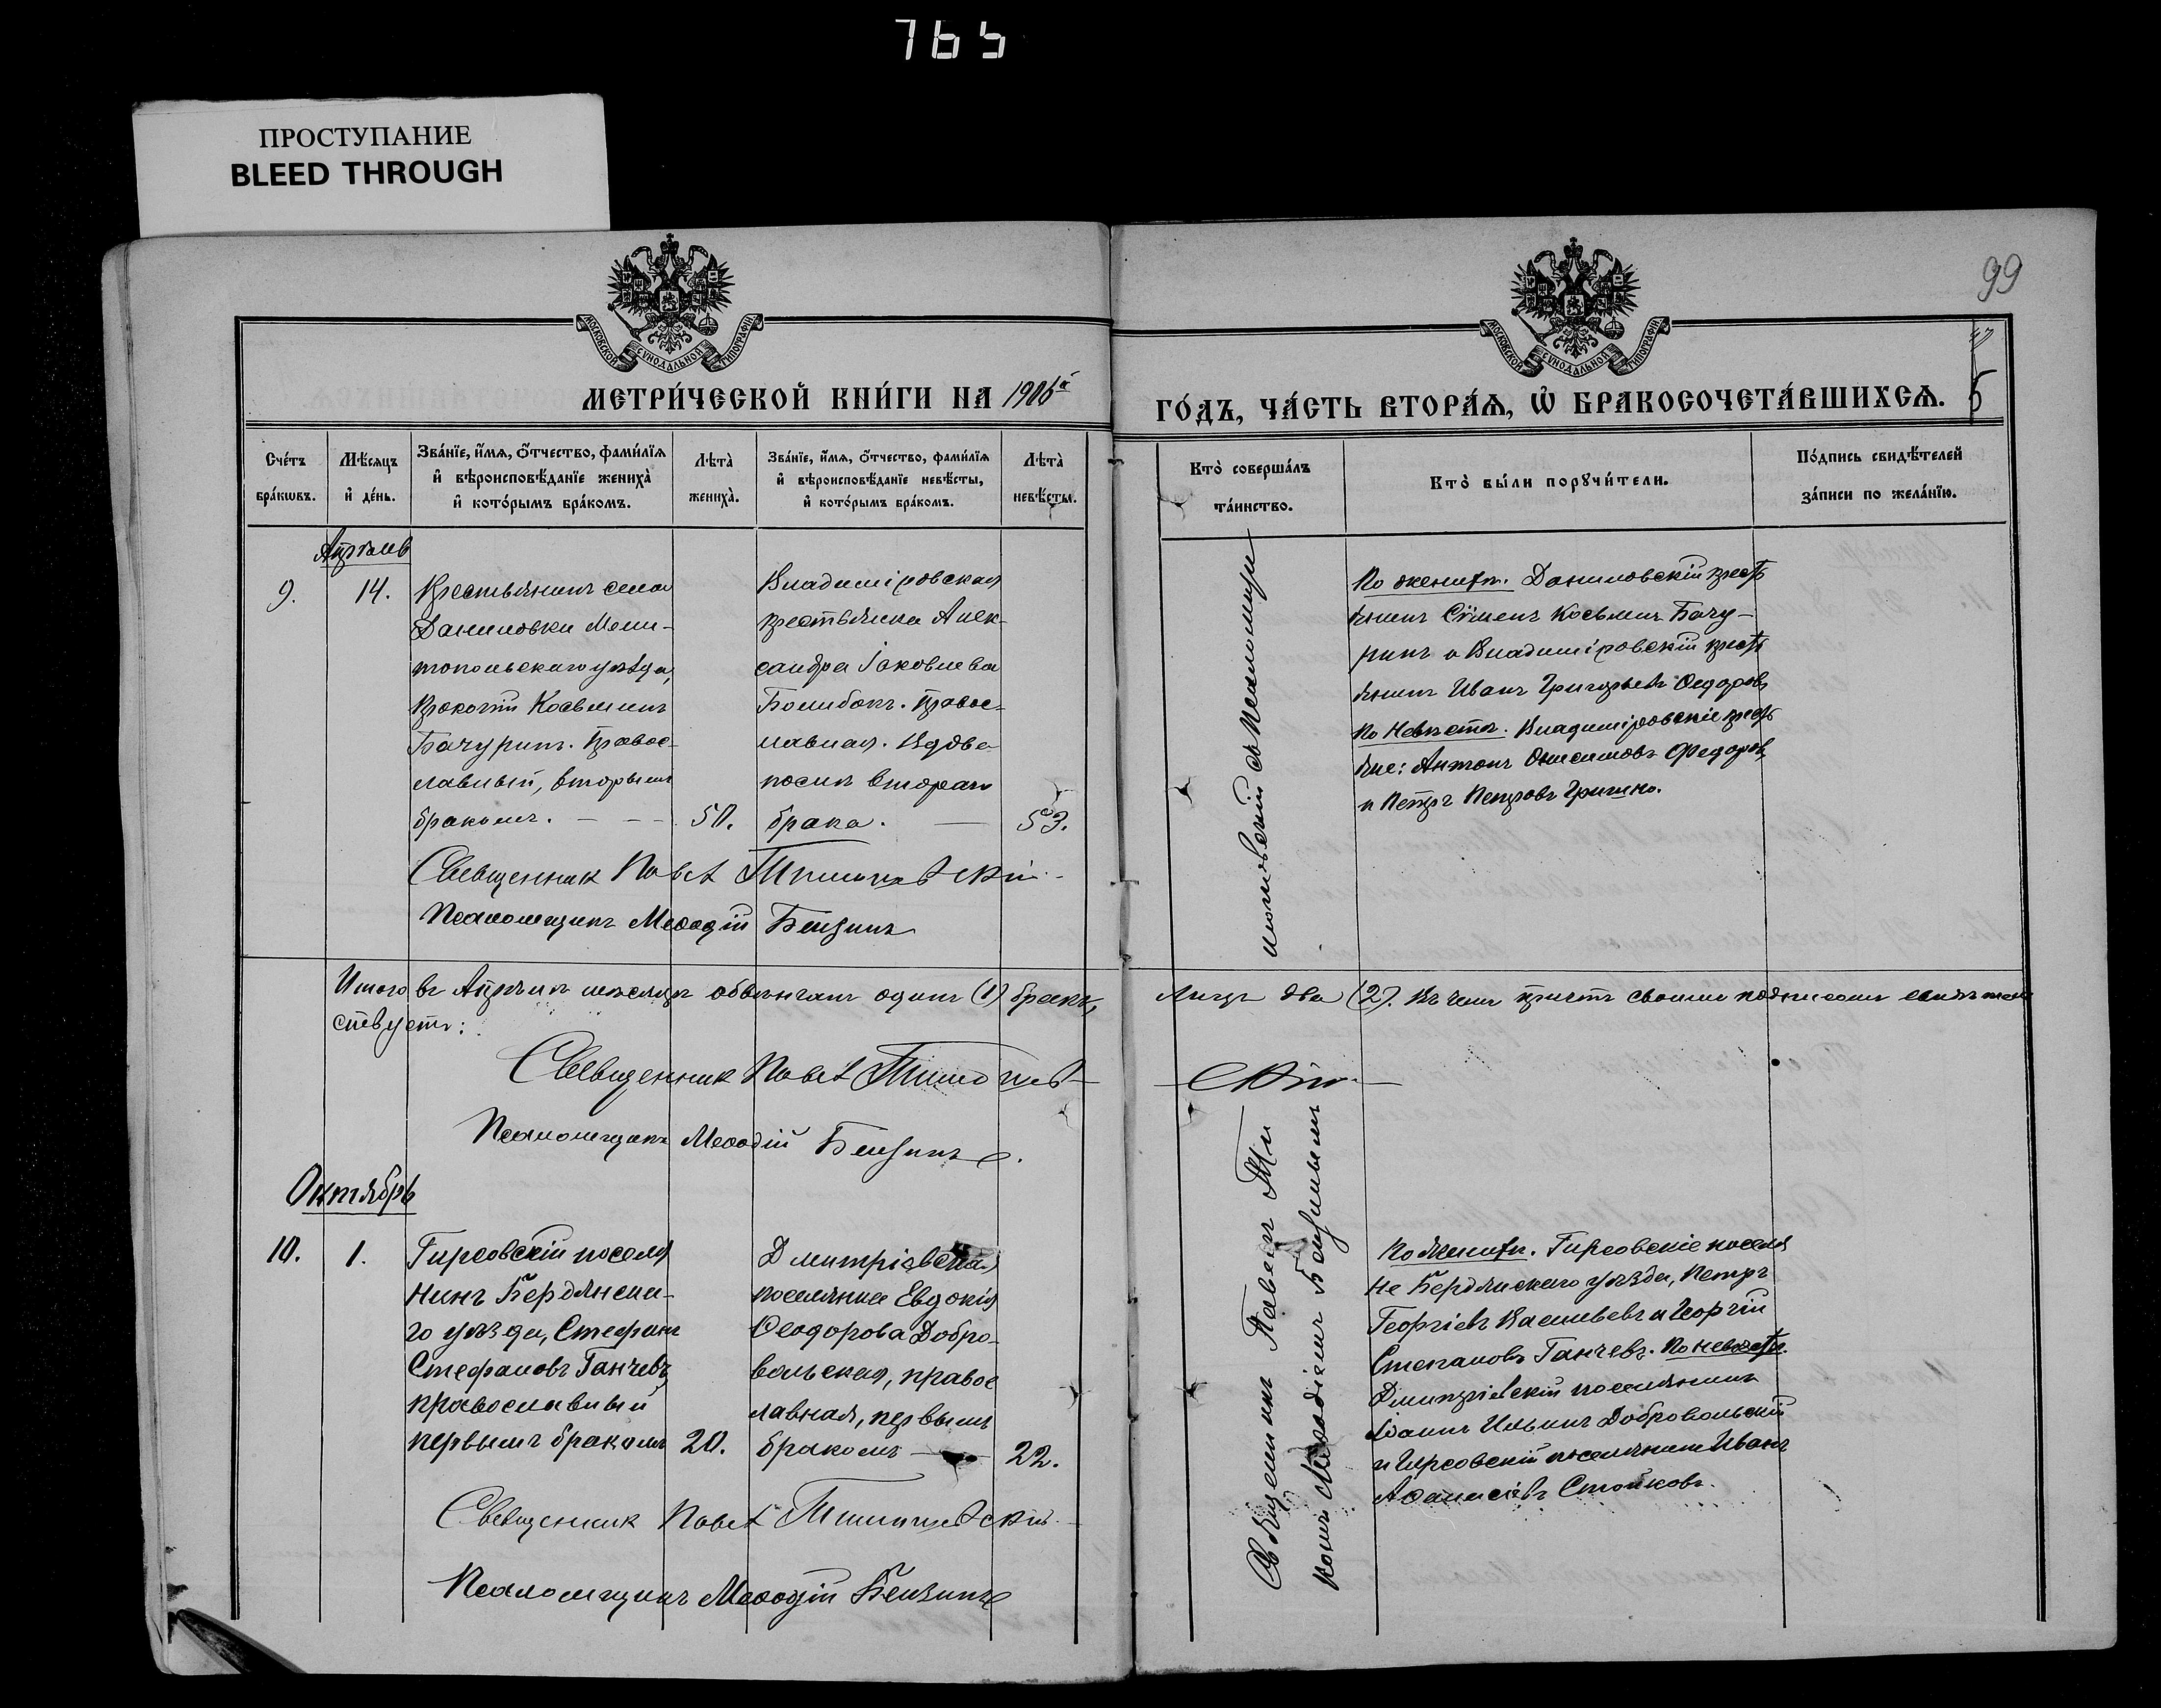 765
ПРОСТУПАНИЕ
BLEED THROUGH
99
МОСКОВСКОЙ СѴНОДАЛЬНОЙ ТИПОГРАФІИ
МОСКОВСКОЙ СѴНОДАЛЬНОЙ ТИПОГРАФІИ
МЕТРИ́ЧЕСКОЙ КНИ́ГИ НА 1906й
ГО́ДЪ, ЧА́СТЬ ВТОРА́Ѧ, Ѡ҆ БРАКОСОЧЕТА́ВШИХСѦ.
5
Сче́тъ бра́кѡвъ.
Мѣ́сѧцъ и҆ де́нь.
Зва́нїе, и҆́мѧ, ѻ҆́тчество, фами́лїѧ и҆ вѣроисповѣ́данїе жениха̀ и҆ кото́рымъ бра́комъ.
Лѣта̀ жениха̀.
Зва́нїе, и҆́мѧ, ѻ҆́тчество, фами́лїѧ и҆ вѣроисповѣ́данїе невѣ́сты, и҆ кото́рымъ бра́комъ.
Лѣта̀ невѣ́сты.
Кто̀ соверша́лъ та́инство.
Кто̀ бы́ли порꙋчи́тели.
По́дпись свидѣ́телей за́писи по жела́нїю.
Апрѣль
9.
14.
Крестьянинъ села
Даниловки Мели-
топольскаго уѣзда,
Прокопій Косьминъ
Бачуринъ. Правос-
лавный, вторымъ
бракомъ. - - -
50.
Владиміровская
крестьянка Алек-
сандра Іаковлева
Правос-
лавная. Вдова
послѣ второго
брака. —
53.
По женихѣ. Даниловскій крестья
нинъ Сѵмеонъ Косьминъ Бачу-
ринъ и Владиміровскій крестья
нинъ Иванъ Григорьевъ Ѳедоровъ
По Невѣстѣ. Владиміровскіе крестья
не: Антонъ Онисимовъ Ѳедоровъ
и Петръ Петровъ Гришко.
Священникъ Павелъ
Псаломщикъ Меѳодій Бензинъ
Итого въ Апрѣлѣ мѣсяцѣ обвѣнчанъ одинъ (1) бракъ, Лицъ два (2). Въ чемъ причтъ своими подписями свидѣтель
ствуетъ:
Священникъ Павелъ
Псаломщикъ Меѳодій Бензинъ
Октябрь
10.
1.
Гирсовскій поселя
нинъ Бердянска-
го уѣзда, Стефанъ
Стефановъ Ганчевъ
православный
первымъ бракомъ
20.
Димитріевская
поселянка Евдокія
Ѳеодорова Добро-
вольская, правос
лавная, первымъ
бракомъ —
22.
Священникъ Павелъ
съ Псаломщи
комъ Меѳодіемъ Бензинымъ
По женихѣ. Гирсовскіе поселя
не Бердянскаго уѣзда, Петръ
Георгіевъ Васильевъ и Георгій
Степановъ Ганчевъ. По невѣстѣ.
Димитріевскій поселянинъ
Іоаннъ Ильинъ Добровольскій
и Гирсовскій поселянинъ Иванъ
Аѳанасіевъ Стойковъ.
Священникъ Павелъ
Псаломщикъ Меѳодій Бензинъ